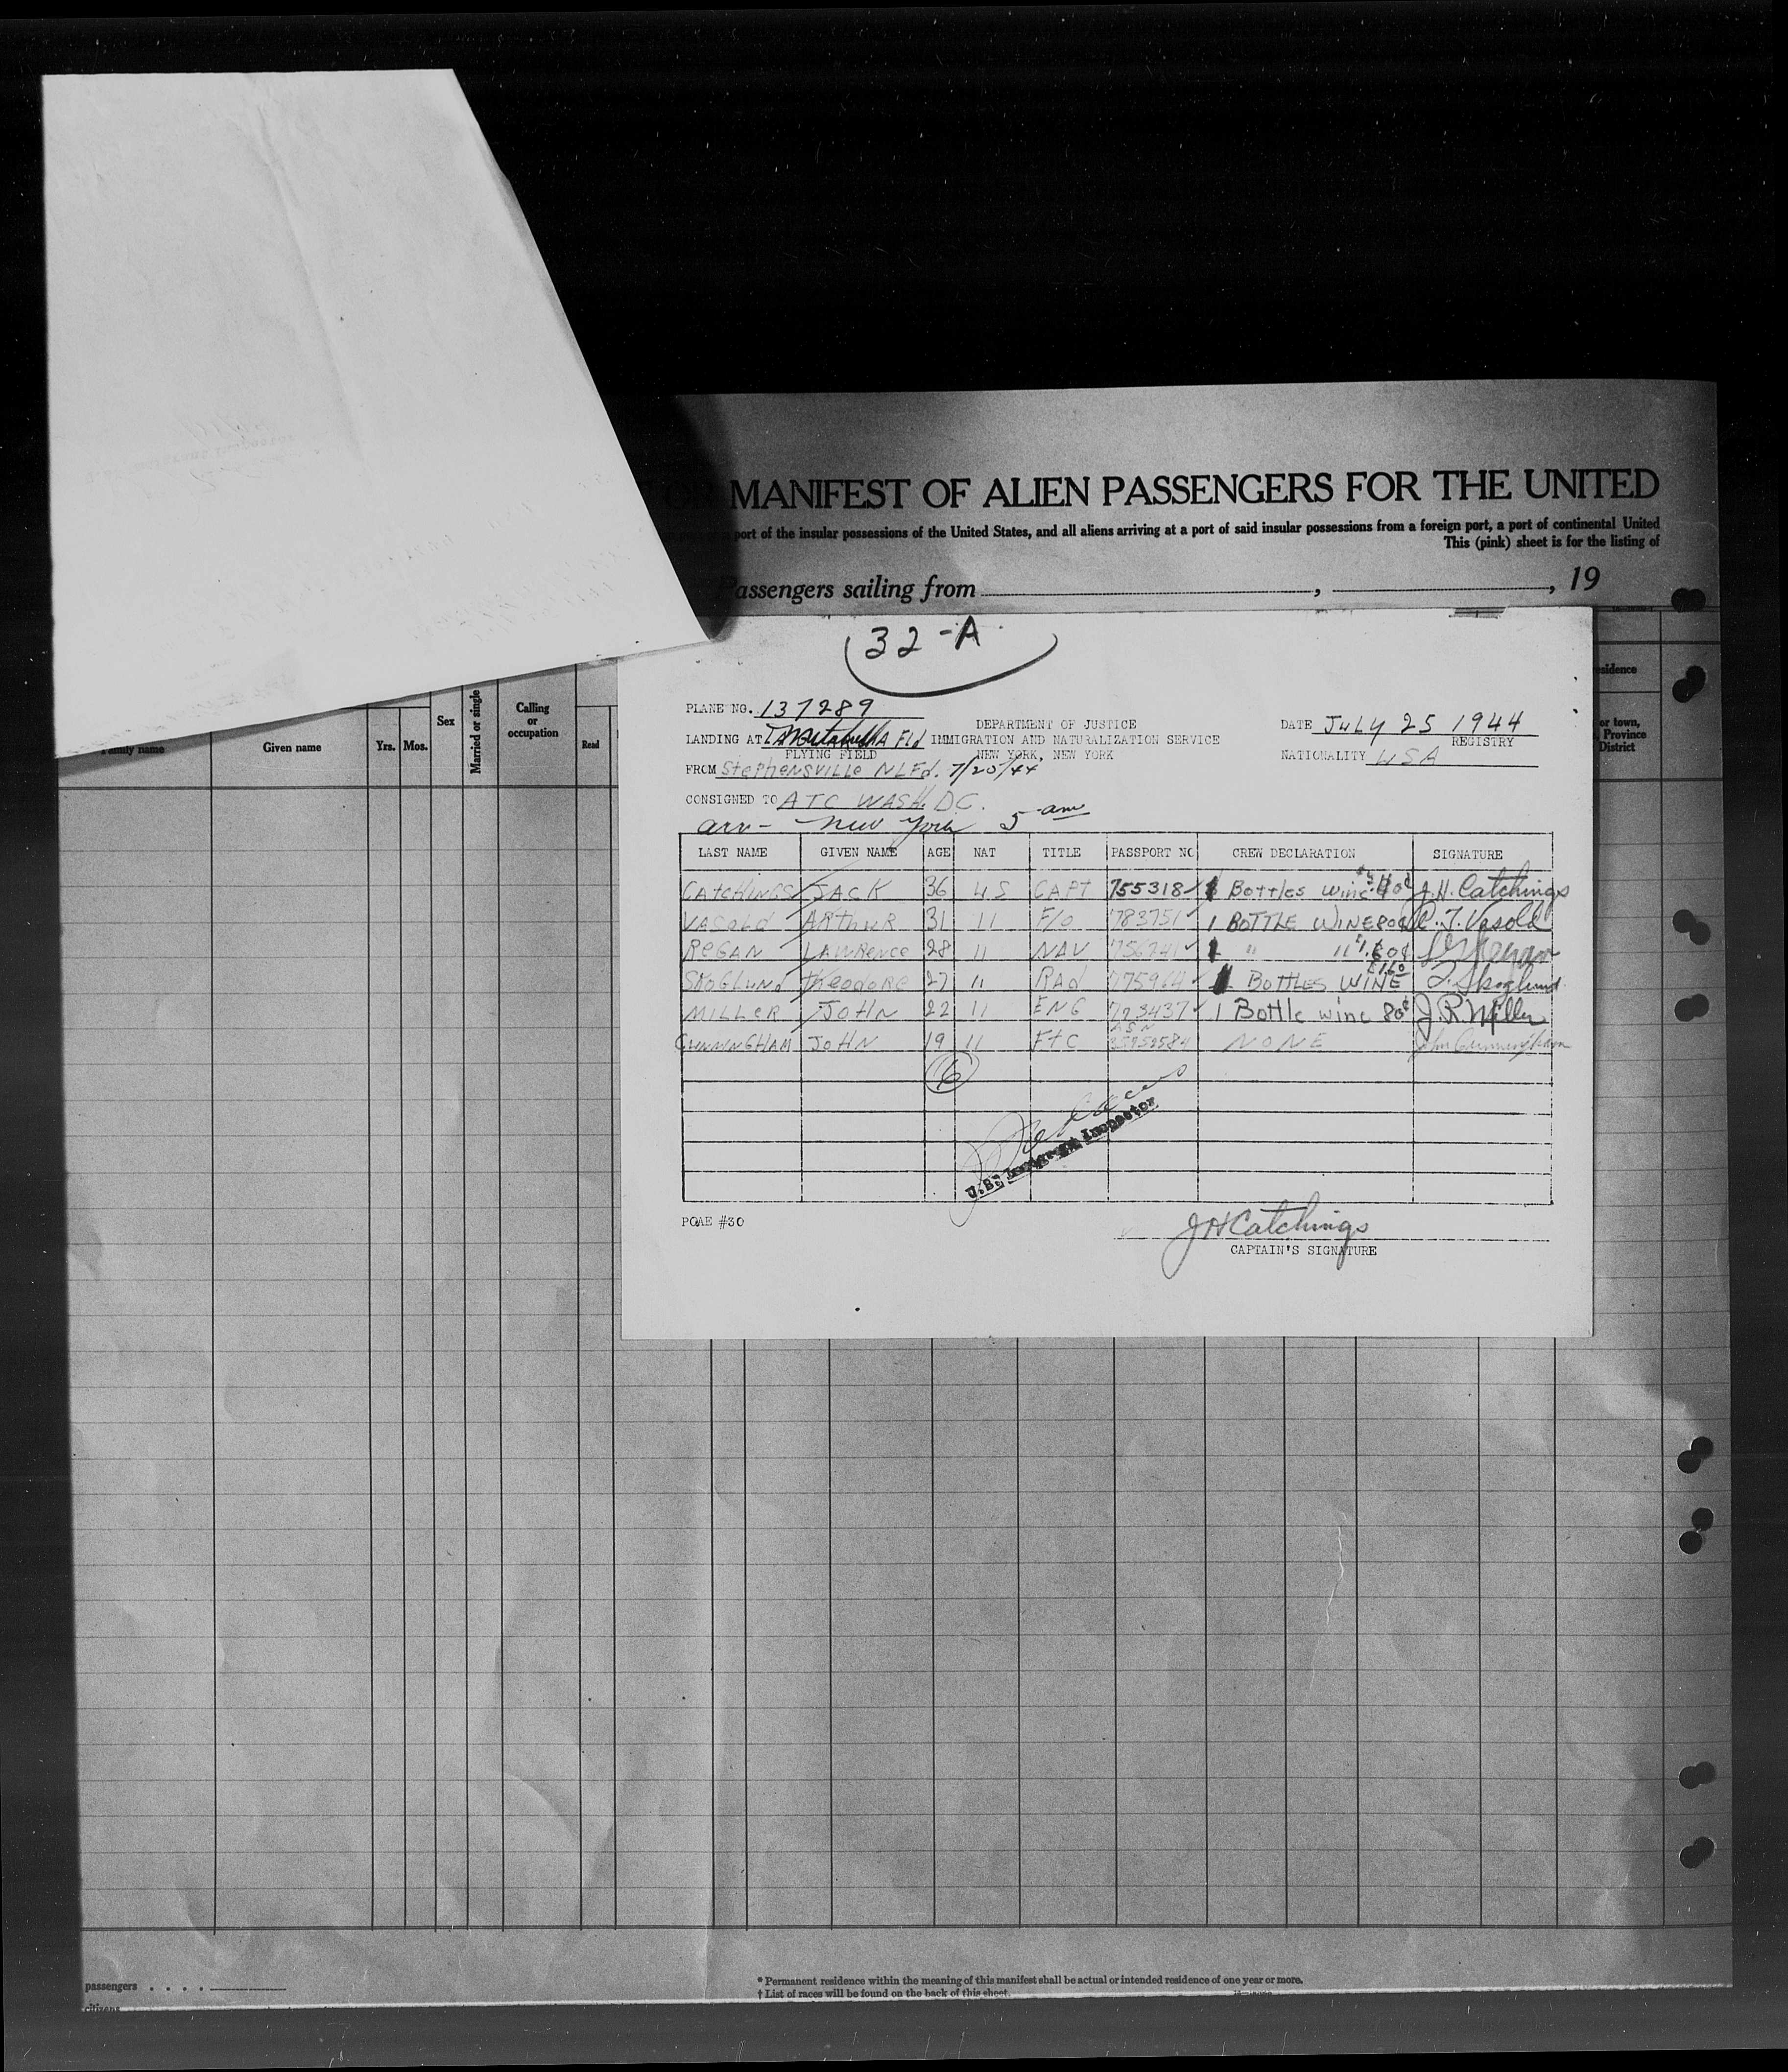 MANIFEST OF ALIEN PASSENGERS FOR THE UNITED
port of the insular possessions of the United States, and all aliens arriving at a port of said insular possessions from a foreign port, a port of continental United
This (pink) sheet is for the listing of
Passengers sailing from , , 19
32-A
PLANE NO. 137289
DEPARTMENT OF JUSTICE
DATE JULY 25 1944
LANDING AT Fld IMMIGRATION AND NATURALIZATION SERVICE
REGISTRY
FLYING FIELD NEW YORK, NEW YORK
NATIONALITY USA
FROM Stephensville NLFd.
CONSIGNED TO ATC WASH. DC.
arr- New York 5 am
LAST NAME GIVEN NAME AGE NAT TITLE PASSPORT NO CREW DECLARATION SIGNATURE
CATCHINGS JACK 36 US CAPT 755318 Bottles wine J.H. Catchings
VASOLD ARTHUR 31 11 F/O 783751 1 BOTTLE WINE 80¢ Vasold
REGAN LAWRence 28 11 NAV 756741 " 11
SKOGLUND THeodoRe 27 11 RAd BOTTLES WINE $1.60 Skoglund
MILLeR JOHN 22 11 ENG 1 Bottle wine 80¢ J.R. Miller
CUNNINGHAM JOHN 19 11 FtC ASN NONE John Cunningham
6
U.S. Immigrant Inspector
POAE #30
JHCatchings
CAPTAIN'S SIGNATURE
Family name Given name Yrs. Mos. Sex Married or single Calling or occupation Read
or town, Province District
passengers . . . .
citizens
* Permanent residence within the meaning of this manifest shall be actual or intended residence of one year or more.
† List of races will be found on the back of this sheet.